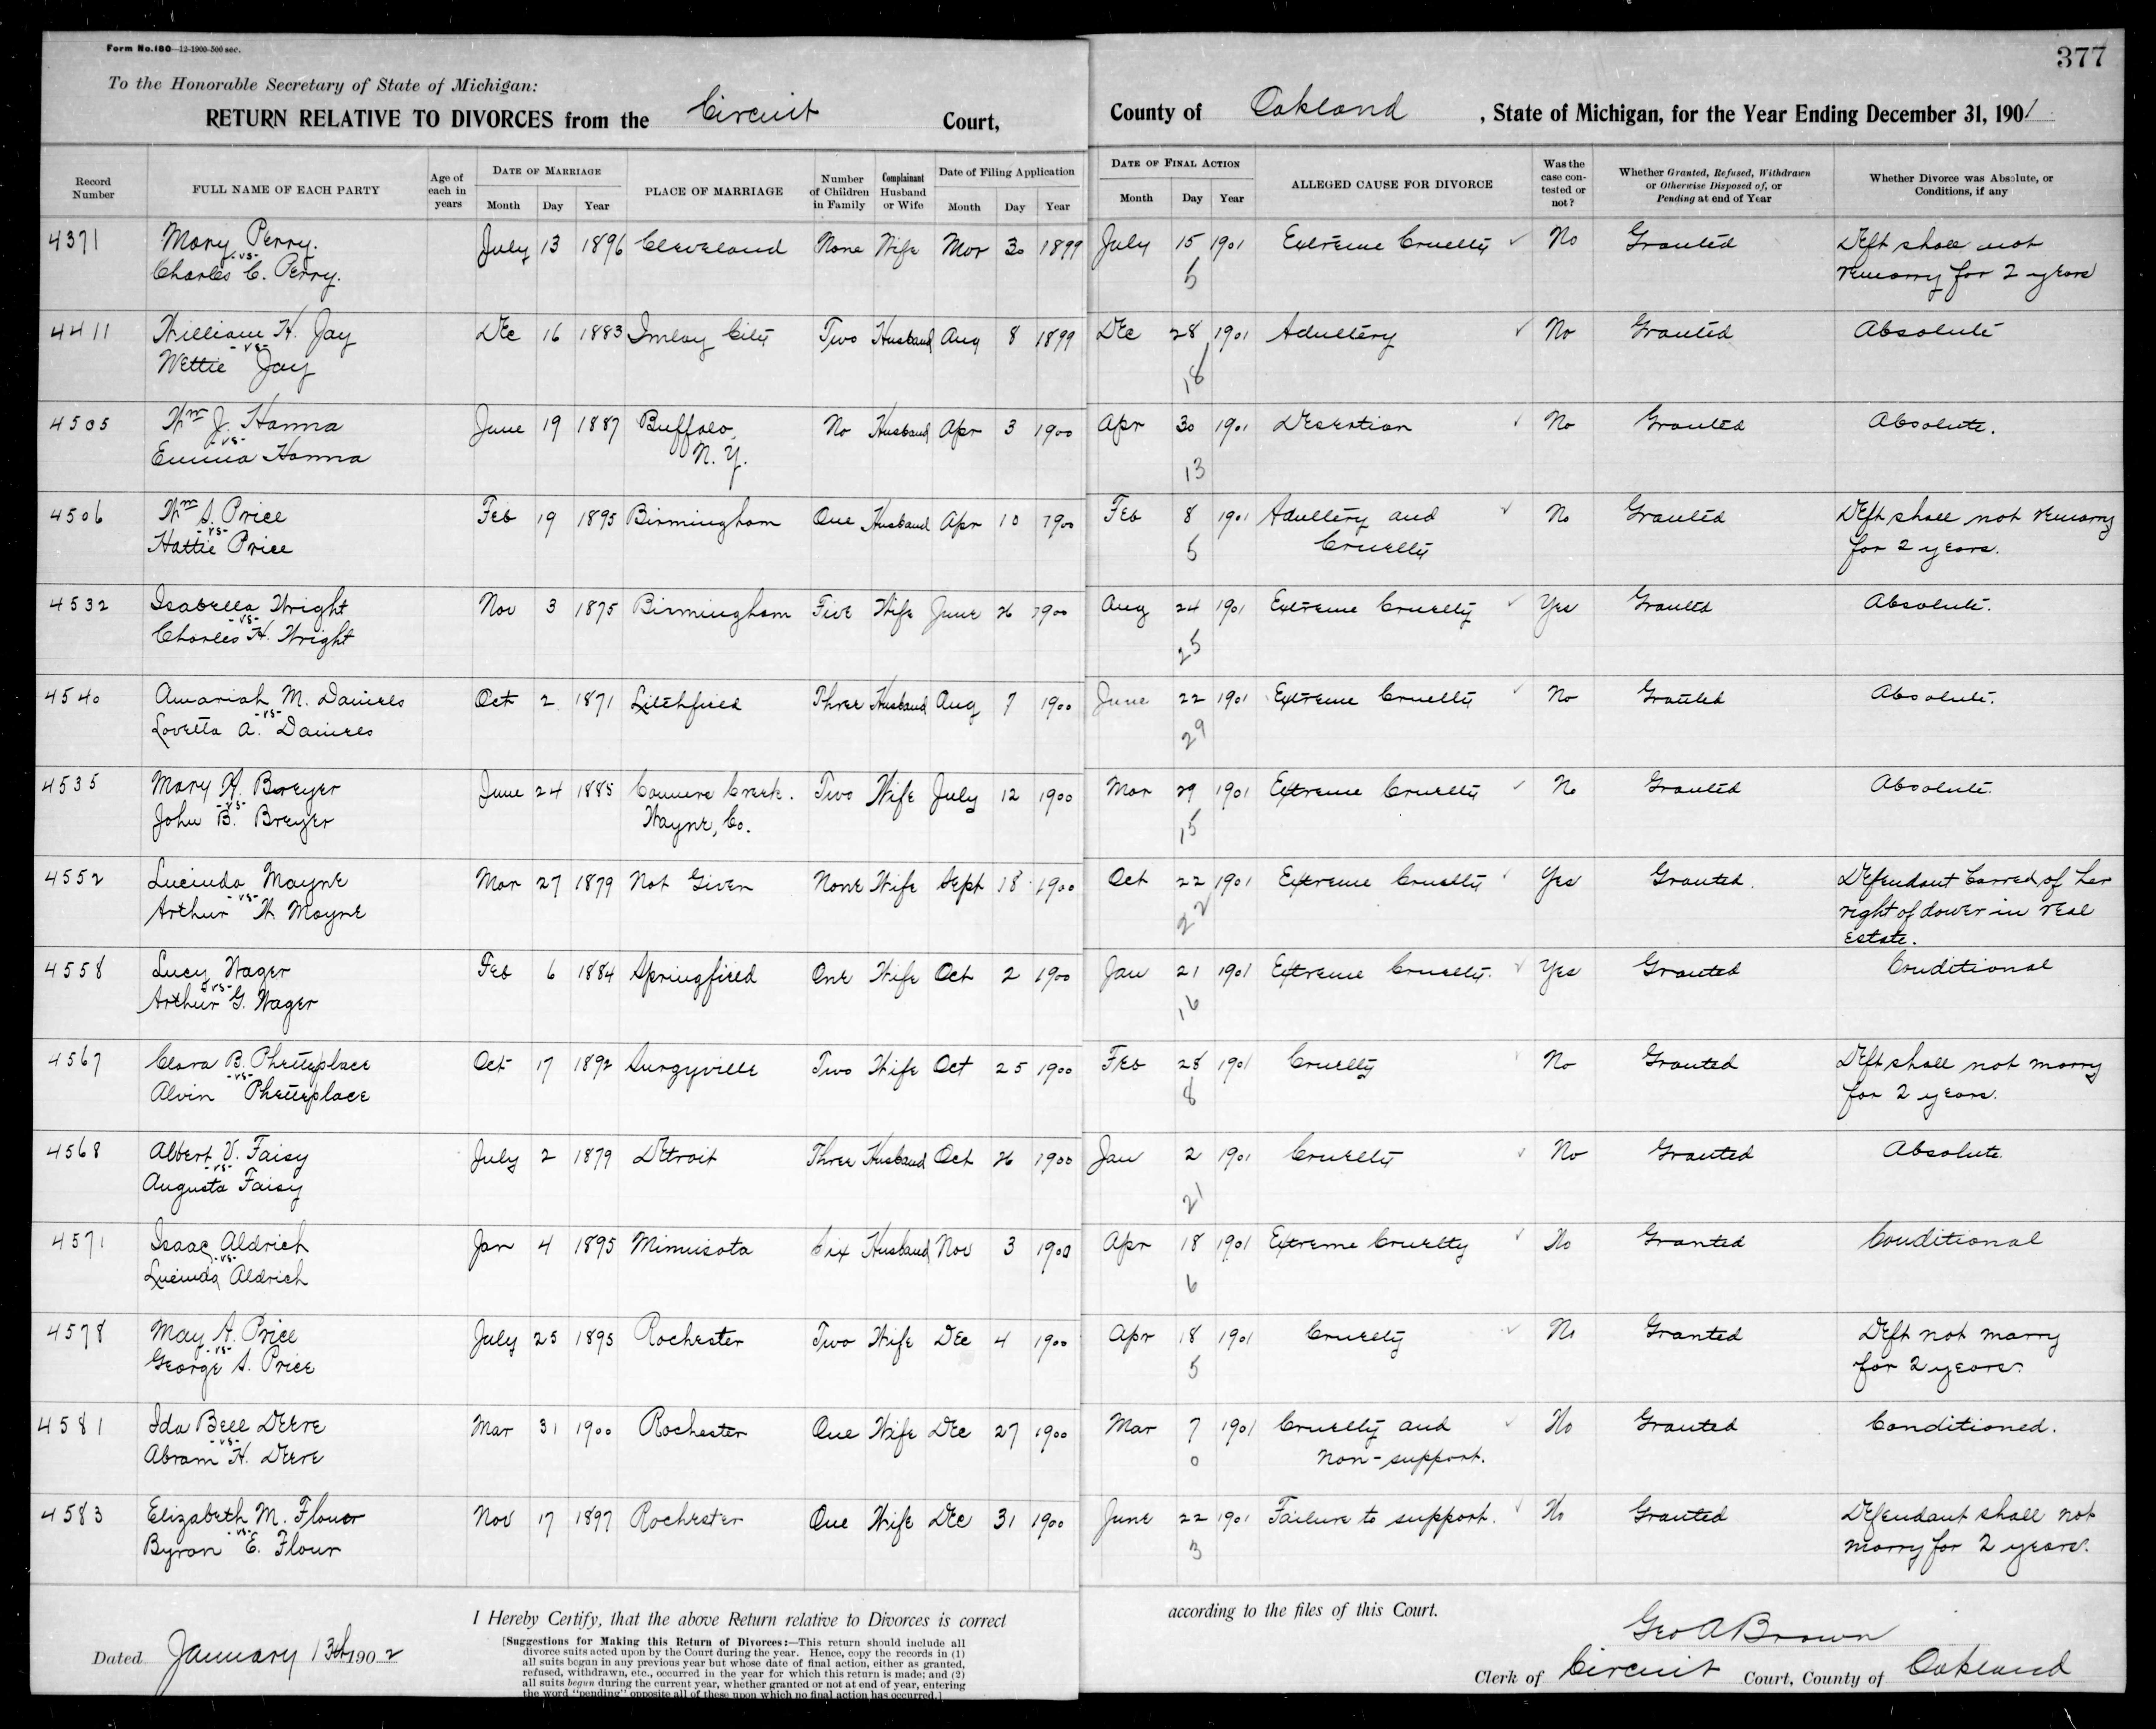 Form No. 180—12-1900-500 sec.
377
To the Honorable Secretary of State of Michigan:
RETURN RELATIVE TO DIVORCES from the Circuit Court, County of Oakland, State of Michigan, for the Year Ending December 31, 1901
Record Number | FULL NAME OF EACH PARTY | Age of each in years | DATE OF MARRIAGE Month Day Year | PLACE OF MARRIAGE | Number of Children in Family | Complainant Husband or Wife | Date of Filing Application Month Day Year | DATE OF FINAL ACTION Month Day Year | ALLEGED CAUSE FOR DIVORCE | Was the case contested or not? | Whether Granted, Refused, Withdrawn or Otherwise Disposed of, or Pending at end of Year | Whether Divorce was Absolute, or Conditions, if any
4371 Mary Perry. July 13 1896 Cleveland None Wife Mar 30 1899 July 15 1901 Extreme Cruelty ✓ No Granted Deft shall not
-vs-
Charles C. Perry. 5 remarry for 2 years
4411 William H. Jay Dec 16 1883 Imlay City Two Husband Aug 8 1899 Dec 28 1901 Adultery ✓ No Granted Absolute
-vs-
Nettie Jay 18
4505 Wm J. Hanna June 19 1887 Buffalo, No Husband Apr 3 1900 Apr 30 1901 Desertion ✓ No Granted Absolute.
-vs-
Emma Hanna N. Y. 13
4506 Wm S. Price Feb 19 1895 Birmingham One Husband Apr 10 1900 Feb 8 1901 Adultery and ✓ No Granted Deft shall not remarry
-vs-
Hattie Price 5 Cruelty for 2 years.
4532 Isabella Wright Nov 3 1875 Birmingham Five Wife June 26 1900 Aug 24 1901 Extreme Cruelty ✓ Yes Granted Absolute.
-vs-
Charles H. Wright 25
4540 Amariah M. Daniels Oct 2 1871 Litchfield Three Husband Aug 7 1900 June 22 1901 Extreme Cruelty ✓ No Granted Absolute.
-vs-
Lovetta A. Daniels 29
4535 Mary H. Breyer June 24 1885 Two Wife July 12 1900 Mar 29 1901 Extreme Cruelty ✓ No Granted Absolute.
-vs-
John B. Breyer Wayne, Co. 15
4552 Lucinda Mayne Mar 27 1879 Not Given None Wife Sept 18 1900 Oct 22 1901 Extreme Cruelty ✓ Yes Granted. Defendant barred of her
-vs-
Arthur W. Mayne 22 right of dower in real
estate.
4558 Lucy Wager Feb 6 1884 Springfield One Wife Oct 2 1900 Jan 21 1901 Extreme Cruelty. ✓ Yes Granted Conditional
-vs-
Arthur G. Wager 16
4567 Clara B. Phetteplace Oct 17 1892 Two Wife Oct 25 1900 Feb 28 1901 Cruelty ✓ No Granted Deft shall not marry
-vs-
Alvin Phetteplace 8 for 2 years.
4568 Albert V. Faisy July 2 1879 Detroit Three Husband Oct 26 1900 Jan 2 1901 Cruelty ✓ No Granted Absolute.
-vs-
Augusta Faisy 21
4571 Isaac Aldrich Jan 4 1895 Minnisota Six Husband Nov 3 1900 Apr 18 1901 Extreme Cruelty ✓ No Granted Conditional
-vs-
Lucinda Aldrich 6
4578 May A. Price July 25 1895 Rochester Two Wife Dec 4 1900 Apr 18 1901 Cruelty ✓ No Granted Deft not marry
-vs-
George S. Price 5 for 2 years.
4581 Ida Bell Deere Mar 31 1900 Rochester One Wife Dec 27 1900 Mar 7 1901 Cruelty and ✓ No Granted Conditioned.
-vs-
Abram H. Deere 0 Non-support.
4583 Elizabeth M. Flour Nov 17 1897 Rochester One Wife Dec 31 1900 June 22 1901 Failure to support. ✓ No Granted Defendant shall not
-vs-
Byron E. Flour 3 marry for 2 years.
I Hereby Certify, that the above Return relative to Divorces is correct according to the files of this Court.
Dated January 13th 1902
[Suggestions for Making this Return of Divorces:—This return should include all
divorce suits acted upon by the Court during the year. Hence, copy the records in (1)
all suits begun in any previous year but whose date of final action, either as granted,
refused, withdrawn, etc., occurred in the year for which this return is made; and (2)
all suits begun during the current year, whether granted or not at end of year, entering
the word "pending" opposite all of these upon which no final action has occurred.]
Geo A Brown
Clerk of Circuit Court, County of Oakland